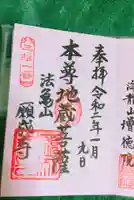 海龍山増徳院
奉拝 令和二年一月
本尊地蔵菩薩
法亀山
願成寺